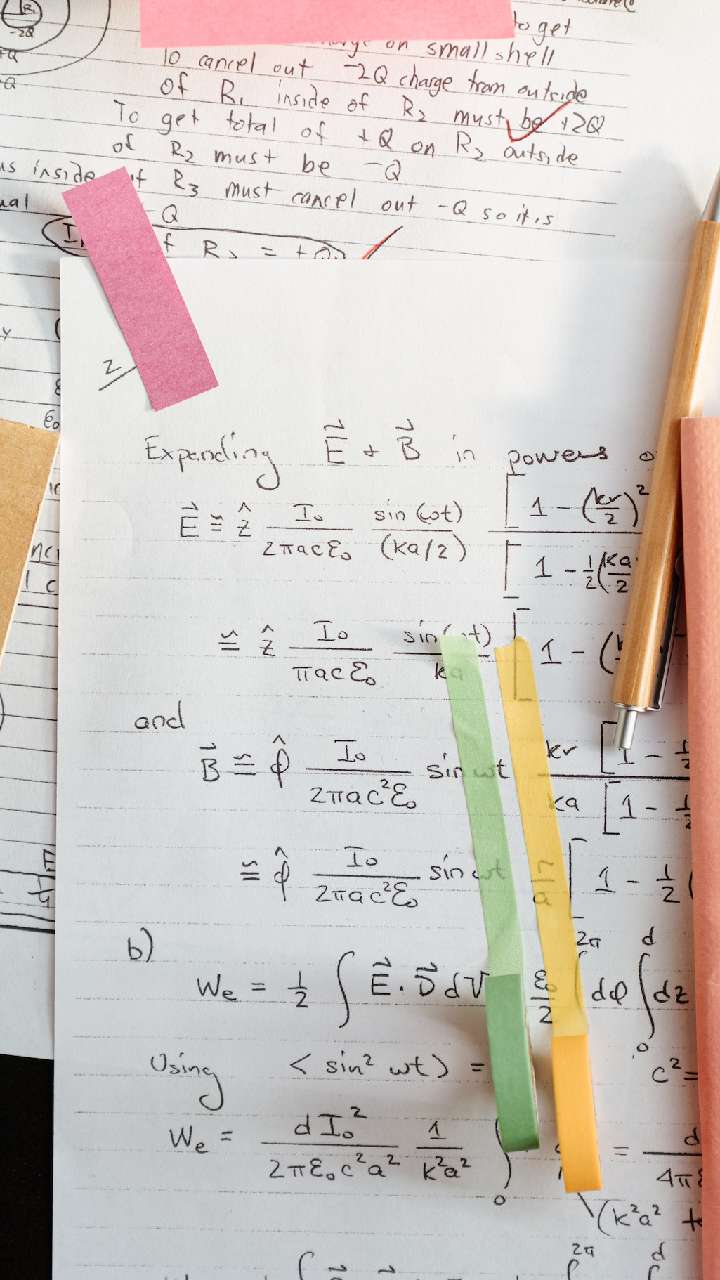 to get
on small shell
To cancel out -2Q charge from outside
of R₁ inside of R₂ must be +2Q
To get total of +Q on R₂ outside
of R₂ must be -Q
inside of R₃ must cancel out -Q so it is
-Q
R₂ = +Q
2
Expanding E⃗ + B⃗ in powers
E⃗ ≅ ẑ I₀/(2πacε₀) sin(ωt)/(ka/2) [1 - (kr/2)²] / [1 - ½(ka/2)
≅ ẑ I₀/(πacε₀) sin(ωt)/ka [1 - (
and
B⃗ ≅ φ̂ I₀/(2πac²ε₀) sin ωt kr [1 - ½ / ka [1 - ½
≅ φ̂ I₀/(2πac²ε₀) sin ωt r/a [1 - ½ (
b)
We = ½ ∫ E⃗ · D⃗ dV ε₀/2 ∫ 2π dφ ∫₀ᵈ dz
Using < sin² ωt > = c² =
We = d I₀²/(2πε₀c²a²) 1/(k²a²) ∫₀ = d/4πε
(k²a²
2π d